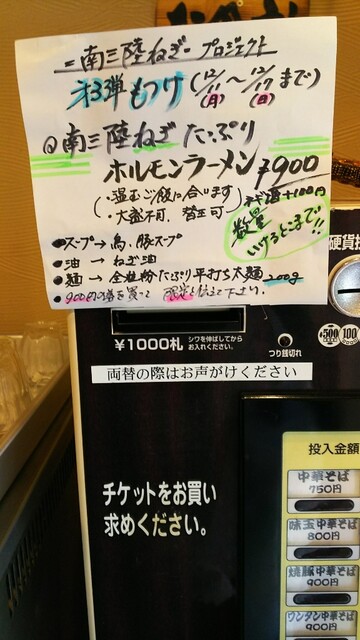 ＝南三陸ねぎープロジェクト
才3弾 もつけ (12/11(月)～12/17(日)まで)
◎南三陸ねぎ たっぷり
ホルモンラーメン ¥900
(・温玉ご飯に合います)
・大盛不可、替玉可
ネギ酒+100円
数量
いけるとこまで!!
●スープ→鳥、豚スープ
●油→ねぎ油
●麺→全粒粉たっぷり平打ち太麺200g
●900円の券を買って 限定と伝えて下さい。
硬貨投
¥1000札
シワを伸ばしてから
お入れください。
つり銭切れ
500 100
両替の際はお声がけください
チケットをお買い
求めください。
投入金額
中華そば
750円
味玉中華そば
800円
焼豚中華そば
900円
ワンタン中華そば
900円